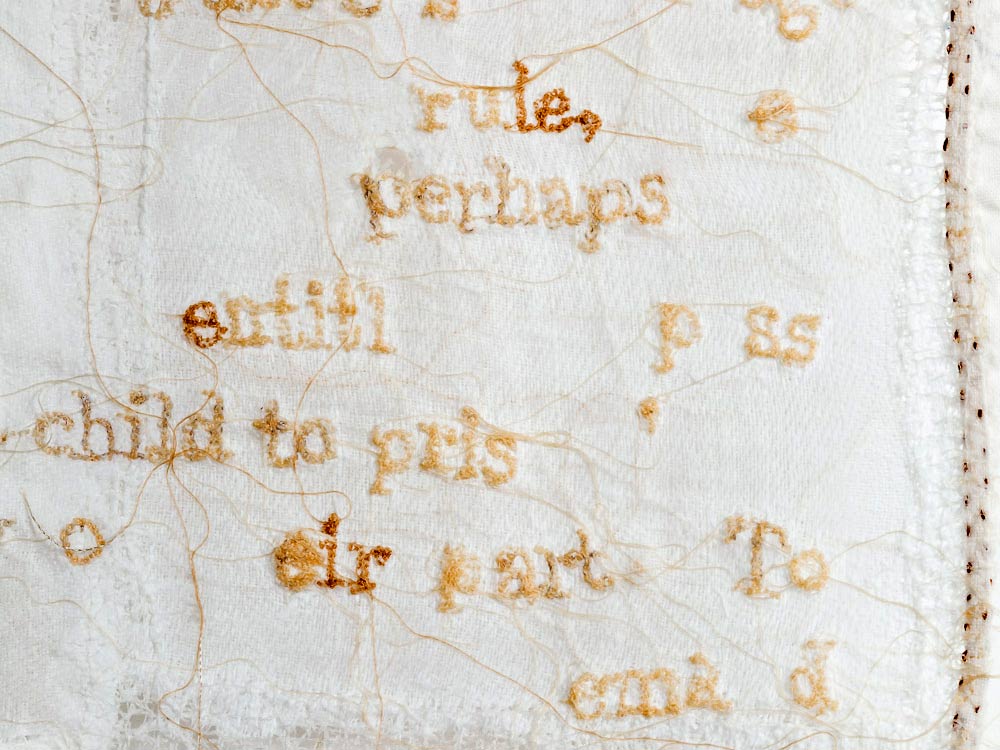 rule, e
perhaps
entitl p ss
child to pris '
o eir part To
ema d